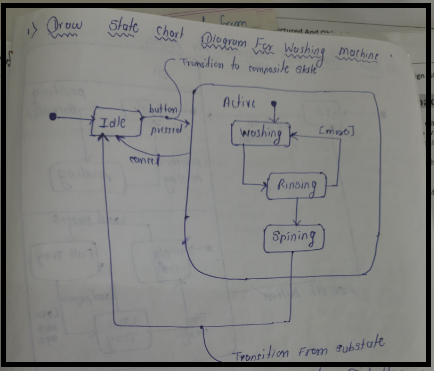 1) Draw State Chart Diagram For Washing machine.
Transition to composite state
Active
button
Idle
pressed
Washing
cancel
Rinsing
Spining
Transition From substate